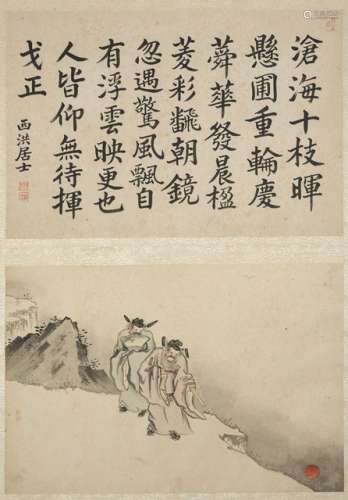 滄海十枝暉
懸圃重輪慶
蕣華發晨楹
菱彩飜朝鏡
忽遇驚風飄自
有浮雲映更也
人皆仰無待揮
戈正
西洪居士